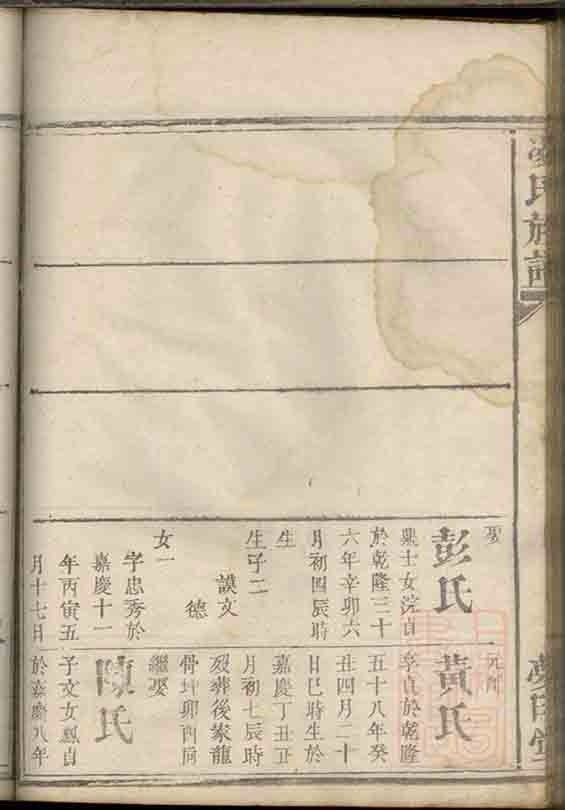 氏族譜
娶
彭氏
鼎士女浣貞
於乾隆三十
六年辛卯六
月初四辰時
生
生子二
謨文
德
女一
字忠秀於
嘉慶十一
年丙寅五
月十七日
黃氏
貞於乾隆
五十八年癸
丑四月二十
日巳時生於
嘉慶丁丑正
月初七辰時
歿葬後家龍
骨坤卯丙向
繼娶
陳氏
子文女慈貞
於嘉慶八年